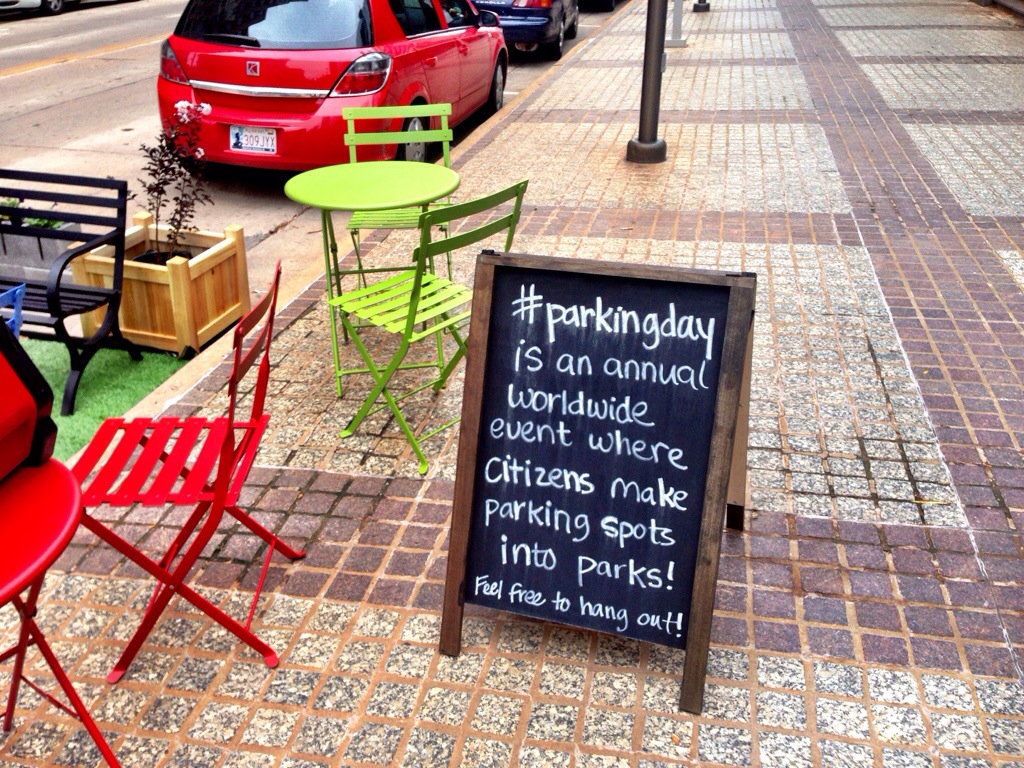 309JYX
#parkingday
is an annual
worldwide
event where
Citizens make
parking spots
into parks!
Feel free to hang out!